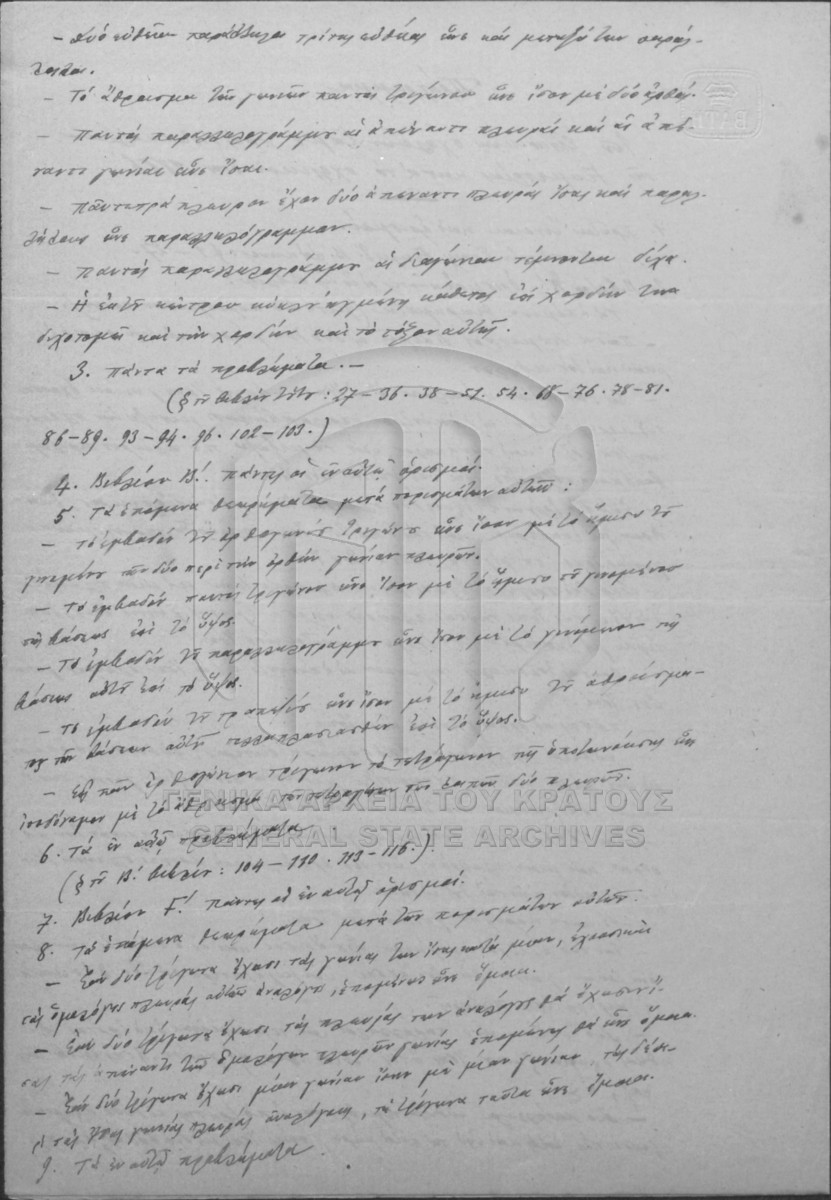 – Δύο εὐθεῖαι παράλληλοι τρίτης εὐθείας εἶνε καὶ μεταξύ των παράλ-
ληλοι.
– Τὸ ἄθροισμα τῶν γωνιῶν παντὸς τριγώνου εἶνε ἴσον μὲ δύο ὀρθάς.
– Παντὸς παραλληλογράμμου αἱ ἀπέναντι πλευραὶ καὶ αἱ ἀπέ-
ναντι γωνίαι εἶνε ἴσαι.
– Πᾶν τετράπλευρον ἔχον δύο ἀπέναντι πλευρὰς ἴσας καὶ παραλ-
λήλους εἶνε παραλληλόγραμμον.
– Παντὸς παραλληλογράμμου αἱ διαγώνιοι τέμνονται δίχα.
– Ἡ ἐκ τοῦ κέντρου κύκλου ἀγμένη κάθετος ἐπὶ χορδήν τινα
διχοτομεῖ καὶ τὴν χορδὴν καὶ τὸ τόξον αὐτῆς.
3. Πάντα τὰ προβλήματα. –
(ἐκ τοῦ Βιβλίου τούτου: 27 – 36. 38 – 51. 54. 68 – 76. 78 – 81.
86 – 89. 93 – 94. 96. 102 – 103.)
4. Βιβλίον Β΄. πάντες οἱ ἐν αὐτῷ ὁρισμοί.
5. Τὰ ἑπόμενα θεωρήματα μετὰ πορισμάτων αὐτῶν:
– Τὸ ἐμβαδὸν τοῦ ὀρθογωνίου τριγώνου εἶνε ἴσον μὲ τὸ ἥμισυ τοῦ
γινομένου τῶν δύο περὶ τὴν ὀρθὴν γωνίαν πλευρῶν.
– Τὸ ἐμβαδὸν παντὸς τριγώνου εἶνε ἴσον μὲ τὸ ἥμισυ τοῦ γινομένου
τῆς βάσεως ἐπὶ τὸ ὕψος.
– Τὸ ἐμβαδὸν τοῦ παραλληλογράμμου εἶνε ἴσον μὲ τὸ γινόμενον τῆς
βάσεως αὐτοῦ ἐπὶ τὸ ὕψος.
– Τὸ ἐμβαδὸν τοῦ τραπεζίου εἶνε ἴσον μὲ τὸ ἥμισυ τοῦ ἀθροίσμα-
τος τῶν βάσεων αὐτοῦ πολλαπλασιασθὲν ἐπὶ τὸ ὕψος.
– Εἰς πᾶν ὀρθογώνιον τρίγωνον τὸ τετράγωνον τῆς ὑποτεινούσης εἶνε
ἰσοδύναμον μὲ τὸ ἄθροισμα τῶν τετραγώνων τῶν λοιπῶν δύο πλευρῶν.
ΓΕΝΙΚΑ ΑΡΧΕΙΑ ΤΟΥ ΚΡΑΤΟΥΣ
GENERAL STATE ARCHIVES
6. Τὰ ἐν αὐτῷ προβλήματα
(ἐκ τοῦ Β΄ Βιβλίου: 104 – 110. 113 – 116.)
7. Βιβλίον Γ΄. πάντες οἱ ἐν αὐτῷ ὁρισμοί.
8. Τὰ ἑπόμενα θεωρήματα μετὰ τῶν πορισμάτων αὐτῶν.
– Ἐὰν δύο τρίγωνα ἔχωσι τὰς γωνίας των ἴσας κατὰ μίαν,
τὰς ὁμολόγους πλευρὰς αὐτῶν ἀναλόγους, ἑπομένως εἶνε ὅμοια.
– Ἐὰν δύο τρίγωνα ἔχωσι τὰς πλευράς των ἀναλόγους θὰ ἔχωσιν ἴ-
σας τὰς ἀπέναντι τῶν ὁμολόγων πλευρῶν γωνίας ἑπομένως θὰ εἶνε ὅμοια.
– Ἐὰν δύο τρίγωνα ἔχωσι μίαν γωνίαν ἴσην μὲ μίαν γωνίαν,
τὰς ἴσας γωνίας πλευρὰς ἀναλόγους, τὰ τρίγωνα ταῦτα εἶνε ὅμοια.
9. Τὰ ἐν αὐτῷ προβλήματα.